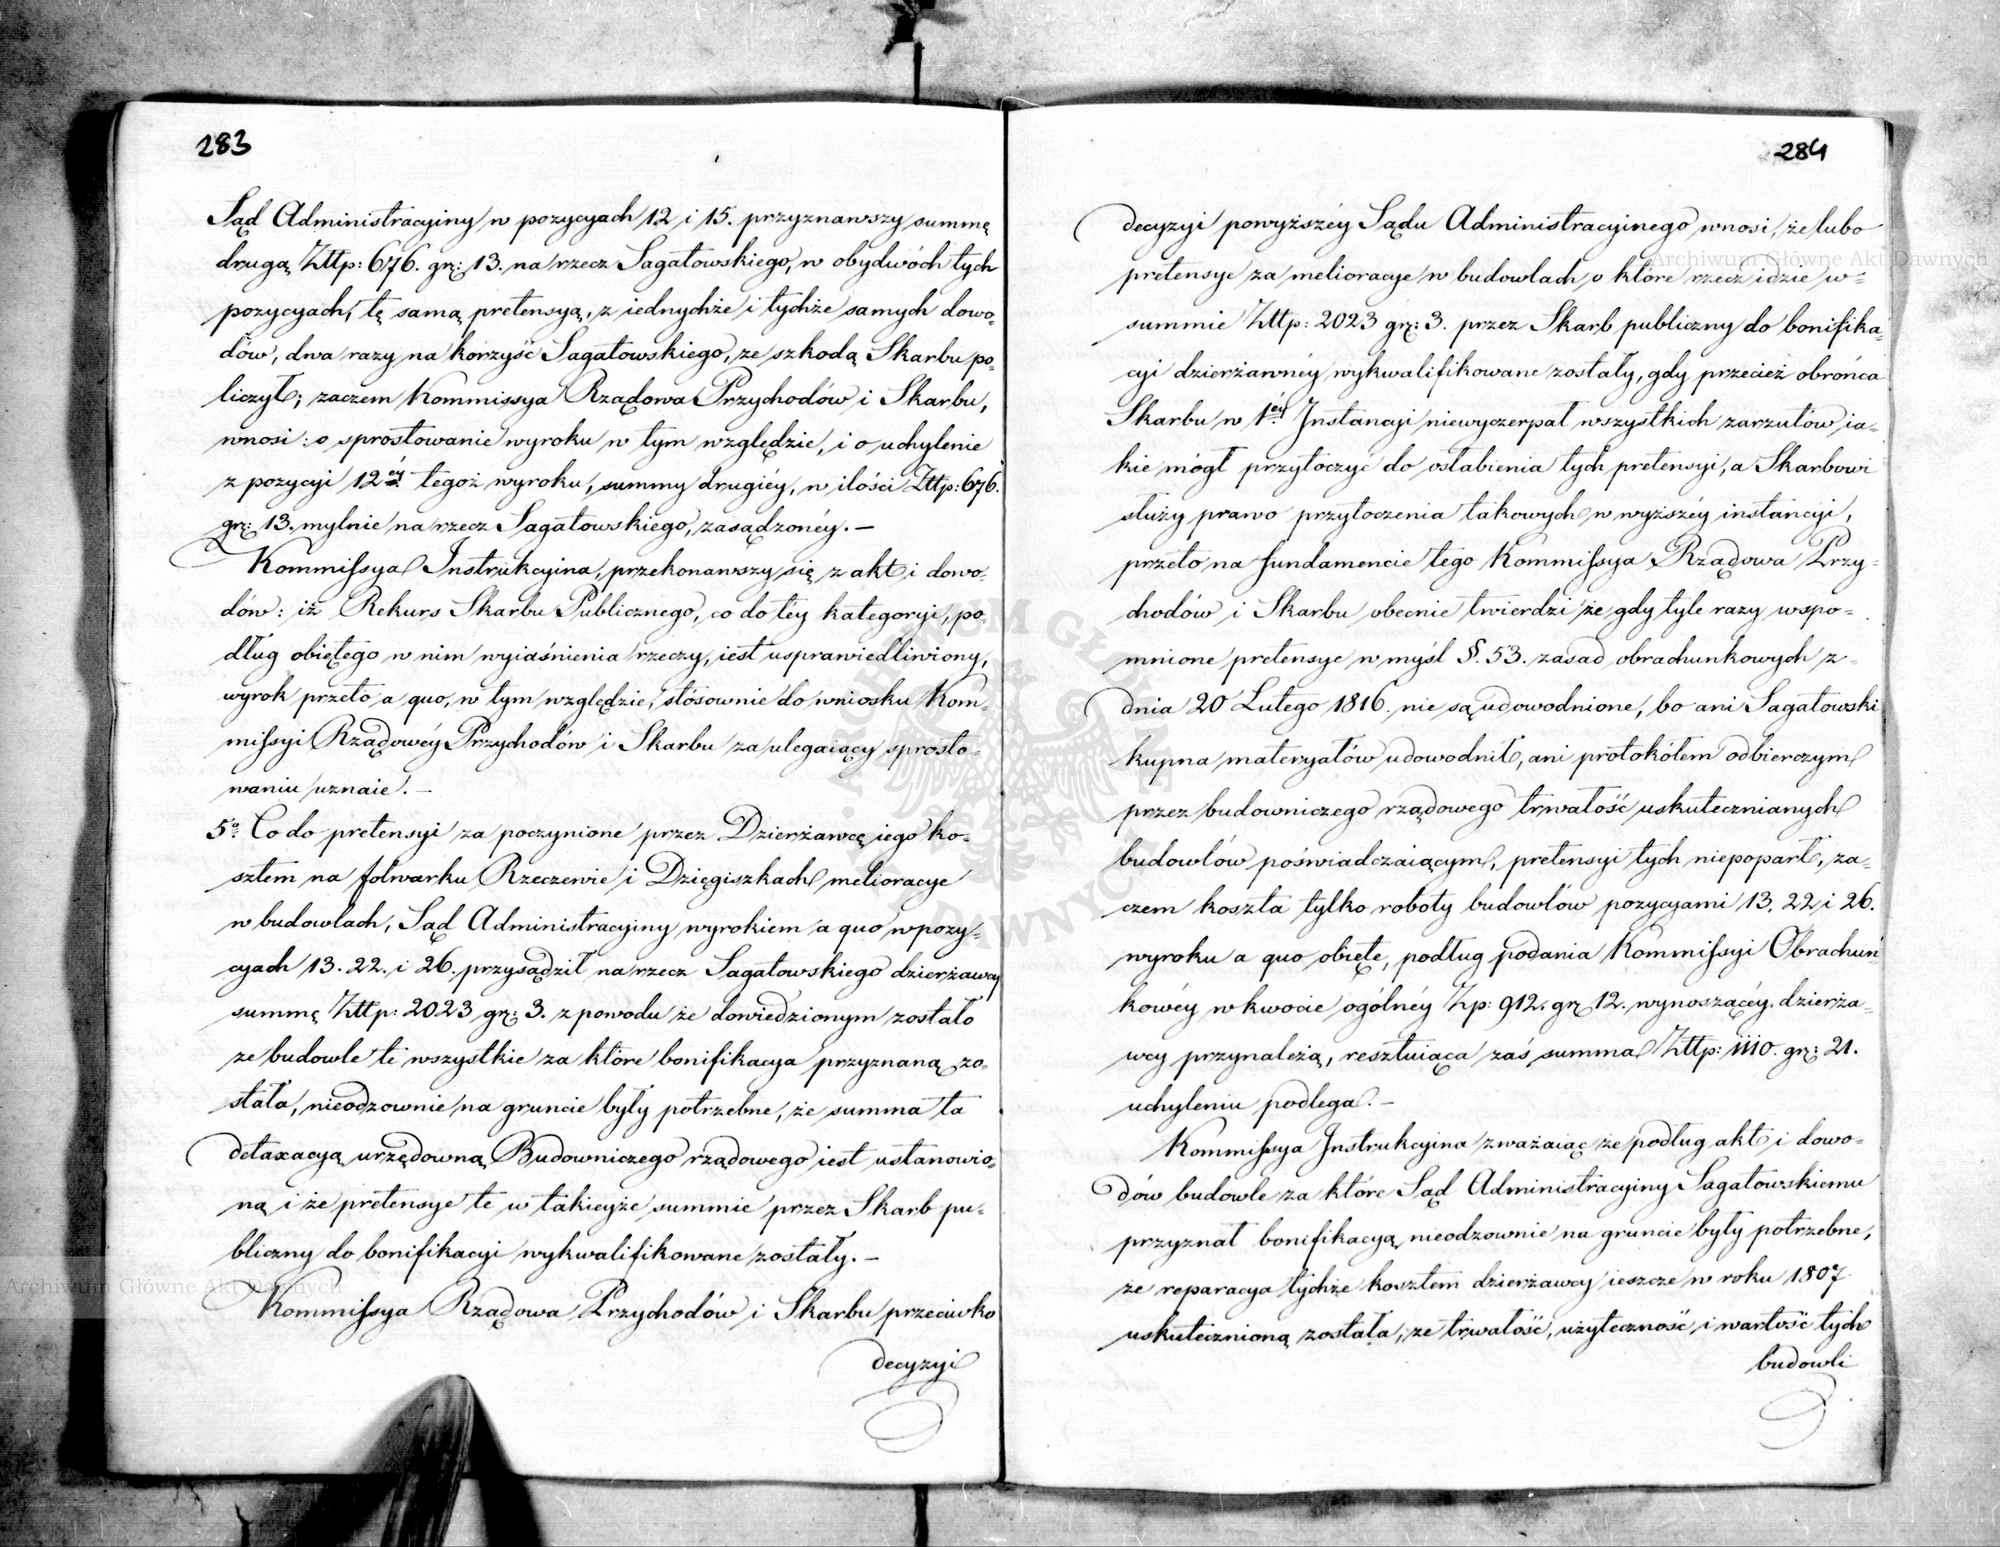 283
Sąd Administracyiny w pozycyach 12 i 15. przyznawszy summę
drugą Złłp: 676. gr: 13. na rzecz Sagatowskiego, w obydwóch tych
pozycyach, tę samą pretensyą, z iednychże i tychże samych dowo-
dów, dwa razy na korzyść Sagatowskiego, ze szkodą Skarbu po-
liczył; zaczem Kommissya Rządowa Przychodów i Skarbu,
wnosi: o sprostowanie wyroku w tym względzie, i o uchylenie
z pozycyi 12éy tegoż wyroku, summy drugiéy, w ilości Złłp: 676.
gr: 13. mylnie na rzecz Sagatowskiego, zasądzonéy. —
Kommissya Instrukcyina, przekonawszy się z akt i dowo-
dów: iż Rekurs Skarbu Publicznego, co do téy kategoryi, po-
dług obiętego w nim wyiaśnienia rzeczy, iest usprawiedliwiony,
wyrok przeto a quo, w tym względzie, stósownie do wniosku Kom-
missyi Rządowéy Przychodów i Skarbu za ulegaiący sprosto-
waniu uznaie. —
5o Co do pretensyi za poczynione przez Dzierżawcę iego ko-
sztem na folwarku Rzeczewie i Dzięgiszkach melioracye
w budowlach, Sąd Administracyiny wyrokiem a quo w pozy-
cyach 13. 22. i 26. przysądził na rzecz Sagatowskiego dzierżawcy
summę Złłp: 2023 gr: 3. z powodu że dowiedzionym zostało
że budowle te wszystkie za które bonifikacya przyznaną zo-
stała, nieodzownie na gruncie były potrzebne, że summa ta
detaxacyą urzędowną Budowniczego rządowego iest ustanowio-
ną i że pretensye te w takieyże summie przez Skarb pu-
bliczny do bonifikacyi wykwalifikowane zostały. —
Kommissya Rządowa Przychodów i Skarbu przeciwko
decyzyi
284
decyzyi powyższéy Sądu Administracyinego wnosi, że lubo
pretensye za melioracye w budowlach o które rzecz idzie w-
summie Złłp: 2023 gr: 3. przez Skarb publiczny do bonifika-
cyi dzierżawnéy wykwalifikowane zostały, gdy przecież obrońca
Skarbu w 1éy Instancyi niewyczerpał wszystkich zarzutów ia-
kie mógł przytoczyć do osłabienia tych pretensyi, a Skarbowi
służy prawo przytoczenia takowych w wyższéy instancyi,
przeto na fundamencie tego Kommissya Rządowa Przy-
chodów i Skarbu obecnie twierdzi że gdy tyle razy wspo-
mnione pretensye w myśl §. 53. zasad obrachunkowych z-
dnia 20 Lutego 1816. nie są udowodnione, bo ani Sagatowski
kupna materyałów udowodnił, ani protokółem odbierczym
przez budowniczego rządowego trwałość uskutecznianych
budowlów poświadczaiącym, pretensyi tych niepoparł, za-
czem koszta tylko roboty budowlów pozycyami 13, 22 i 26.
wyroku a quo obięte, podług podania Kommissyi Obrachun-
kowéy w kwocie ogólnéy Zp: 912. gr 12. wynoszącéy. dzierża-
wcy przynależą, resztuiąca zaś summa Złłp: 1110. gr: 21.
uchyleniu podlega. —
Kommissya Instrukcyina zważaiąc że podług akt i dowo-
dów budowle za które Sąd Administracyiny Sagatowskiemu
przyznał bonifikacyą nieodzownie na gruncie były potrzebne,
że reparacya tychże kosztem dzierżawcy ieszcze w roku 1807
uskutecznioną została, że trwałość, użyteczność i wartość tych
budowli
Archiwum Główne Akt Dawnych
Archiwum Główne Akt Dawnych
ARCHIWUM GŁÓWNE AKT DAWNYCH